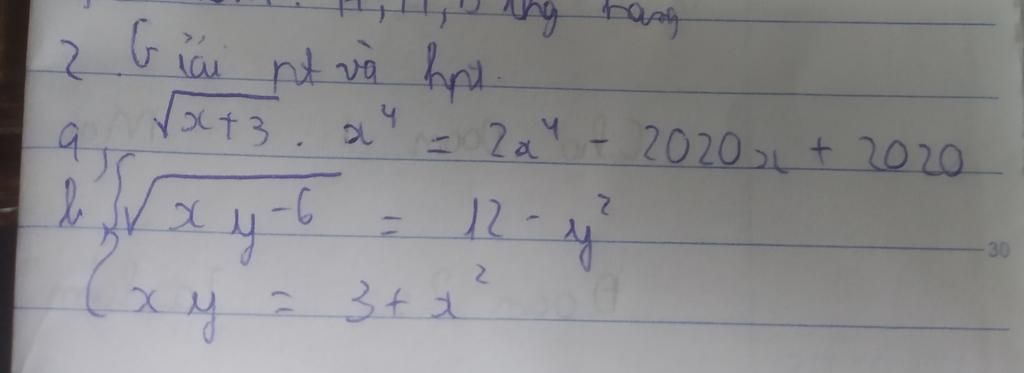 ứng hàng
2. Giải pt và hpt.
a, √(x+3) . x⁴ = 2x⁴ - 2020x + 2020
b, { √(xy-6) = 12 - y²
xy = 3 + x²
30